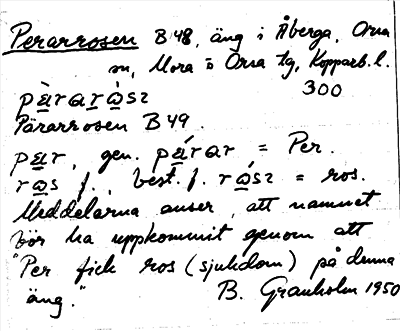 Perarrosen B 48, äng i Åberga, Orsa
sn, Mora o Orsa tg, Kopparb. l.
300
pàrarròsɪ
Pärarrosen B 49.
pär, gen. pä́rar = Per.
ros f., best. f. rósɪ = ros.
Meddelarna anser, att namnet
bör ha uppkommit genom att
"Per fick ros (sjukdom) på denna
äng."
B. Granholm 1950